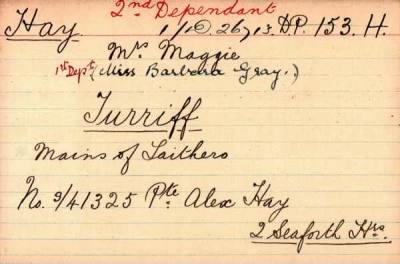 2nd Dependant
Hay 1/10. 26/13. DP. 153. H.
Mrs Maggie
1st Dept (Miss Barbara Gray.)
Turriff
Mains of Laithers
No. S/41325 Pte Alex Hay
2 Seaforth Hrs.